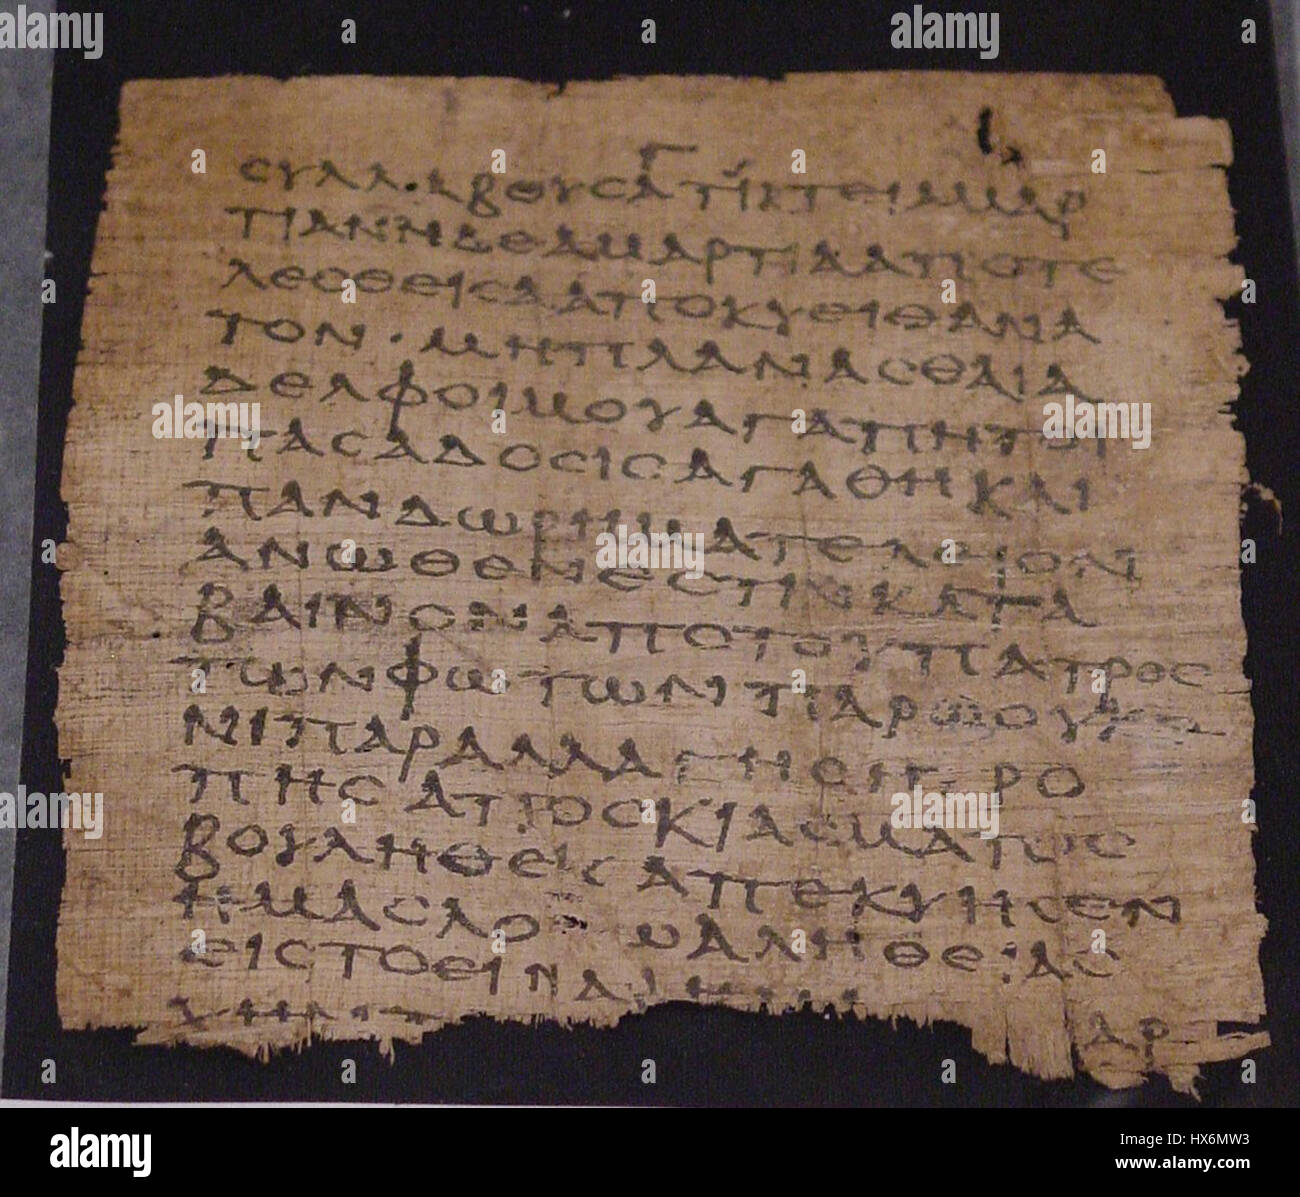 Β
ϹΥΛΛΑΒΟΥϹΑΤΙΚΤΕΙΑΜΑΡ
ΤΙΑΝΗΔΕΑΜΑΡΤΙΑΑΠΟΤΕ
ΛΕϹΘΕΙϹΑΑΠΟΚΥΕΙΘΑΝΑ
ΤΟΝ · ΜΗΠΛΑΝΑϹΘΑΙΑ
ΔΕΛΦΟΙΜΟΥΑΓΑΠΗΤΟΙ
ΠΑϹΑΔΟϹΙϹΑΓΑΘΗΚΑΙ
ΠΑΝΔΩΡΗΜΑΤΕΛΕΙΟΝ
ΑΝΩΘΕΝΕϹΤΙΝΚΑΤΑ
ΒΑΙΝΟΝΑΠΟΤΟΥΠΑΤΡΟϹ
ΤΩΝΦΩΤΩΝΠΑΡΩΟΥΚΕ
ΝΙΠΑΡΑΛΛΑΓΗϹΗΤΡΟ
ΠΗϹΑΠΟϹΚΙΑϹΜΑΤΟϹ
ΒΟΥΛΗΘΕΙϹΑΠΕΚΥΗϹΕΝ
ΗΜΑϹΛΟΓΩΑΛΗΘΕΙΑϹ
ΕΙϹΤΟΕΙΝΑΙΗΜΑϹ
ΑΡ
alamy
Image ID: HX6MW3
www.alamy.com